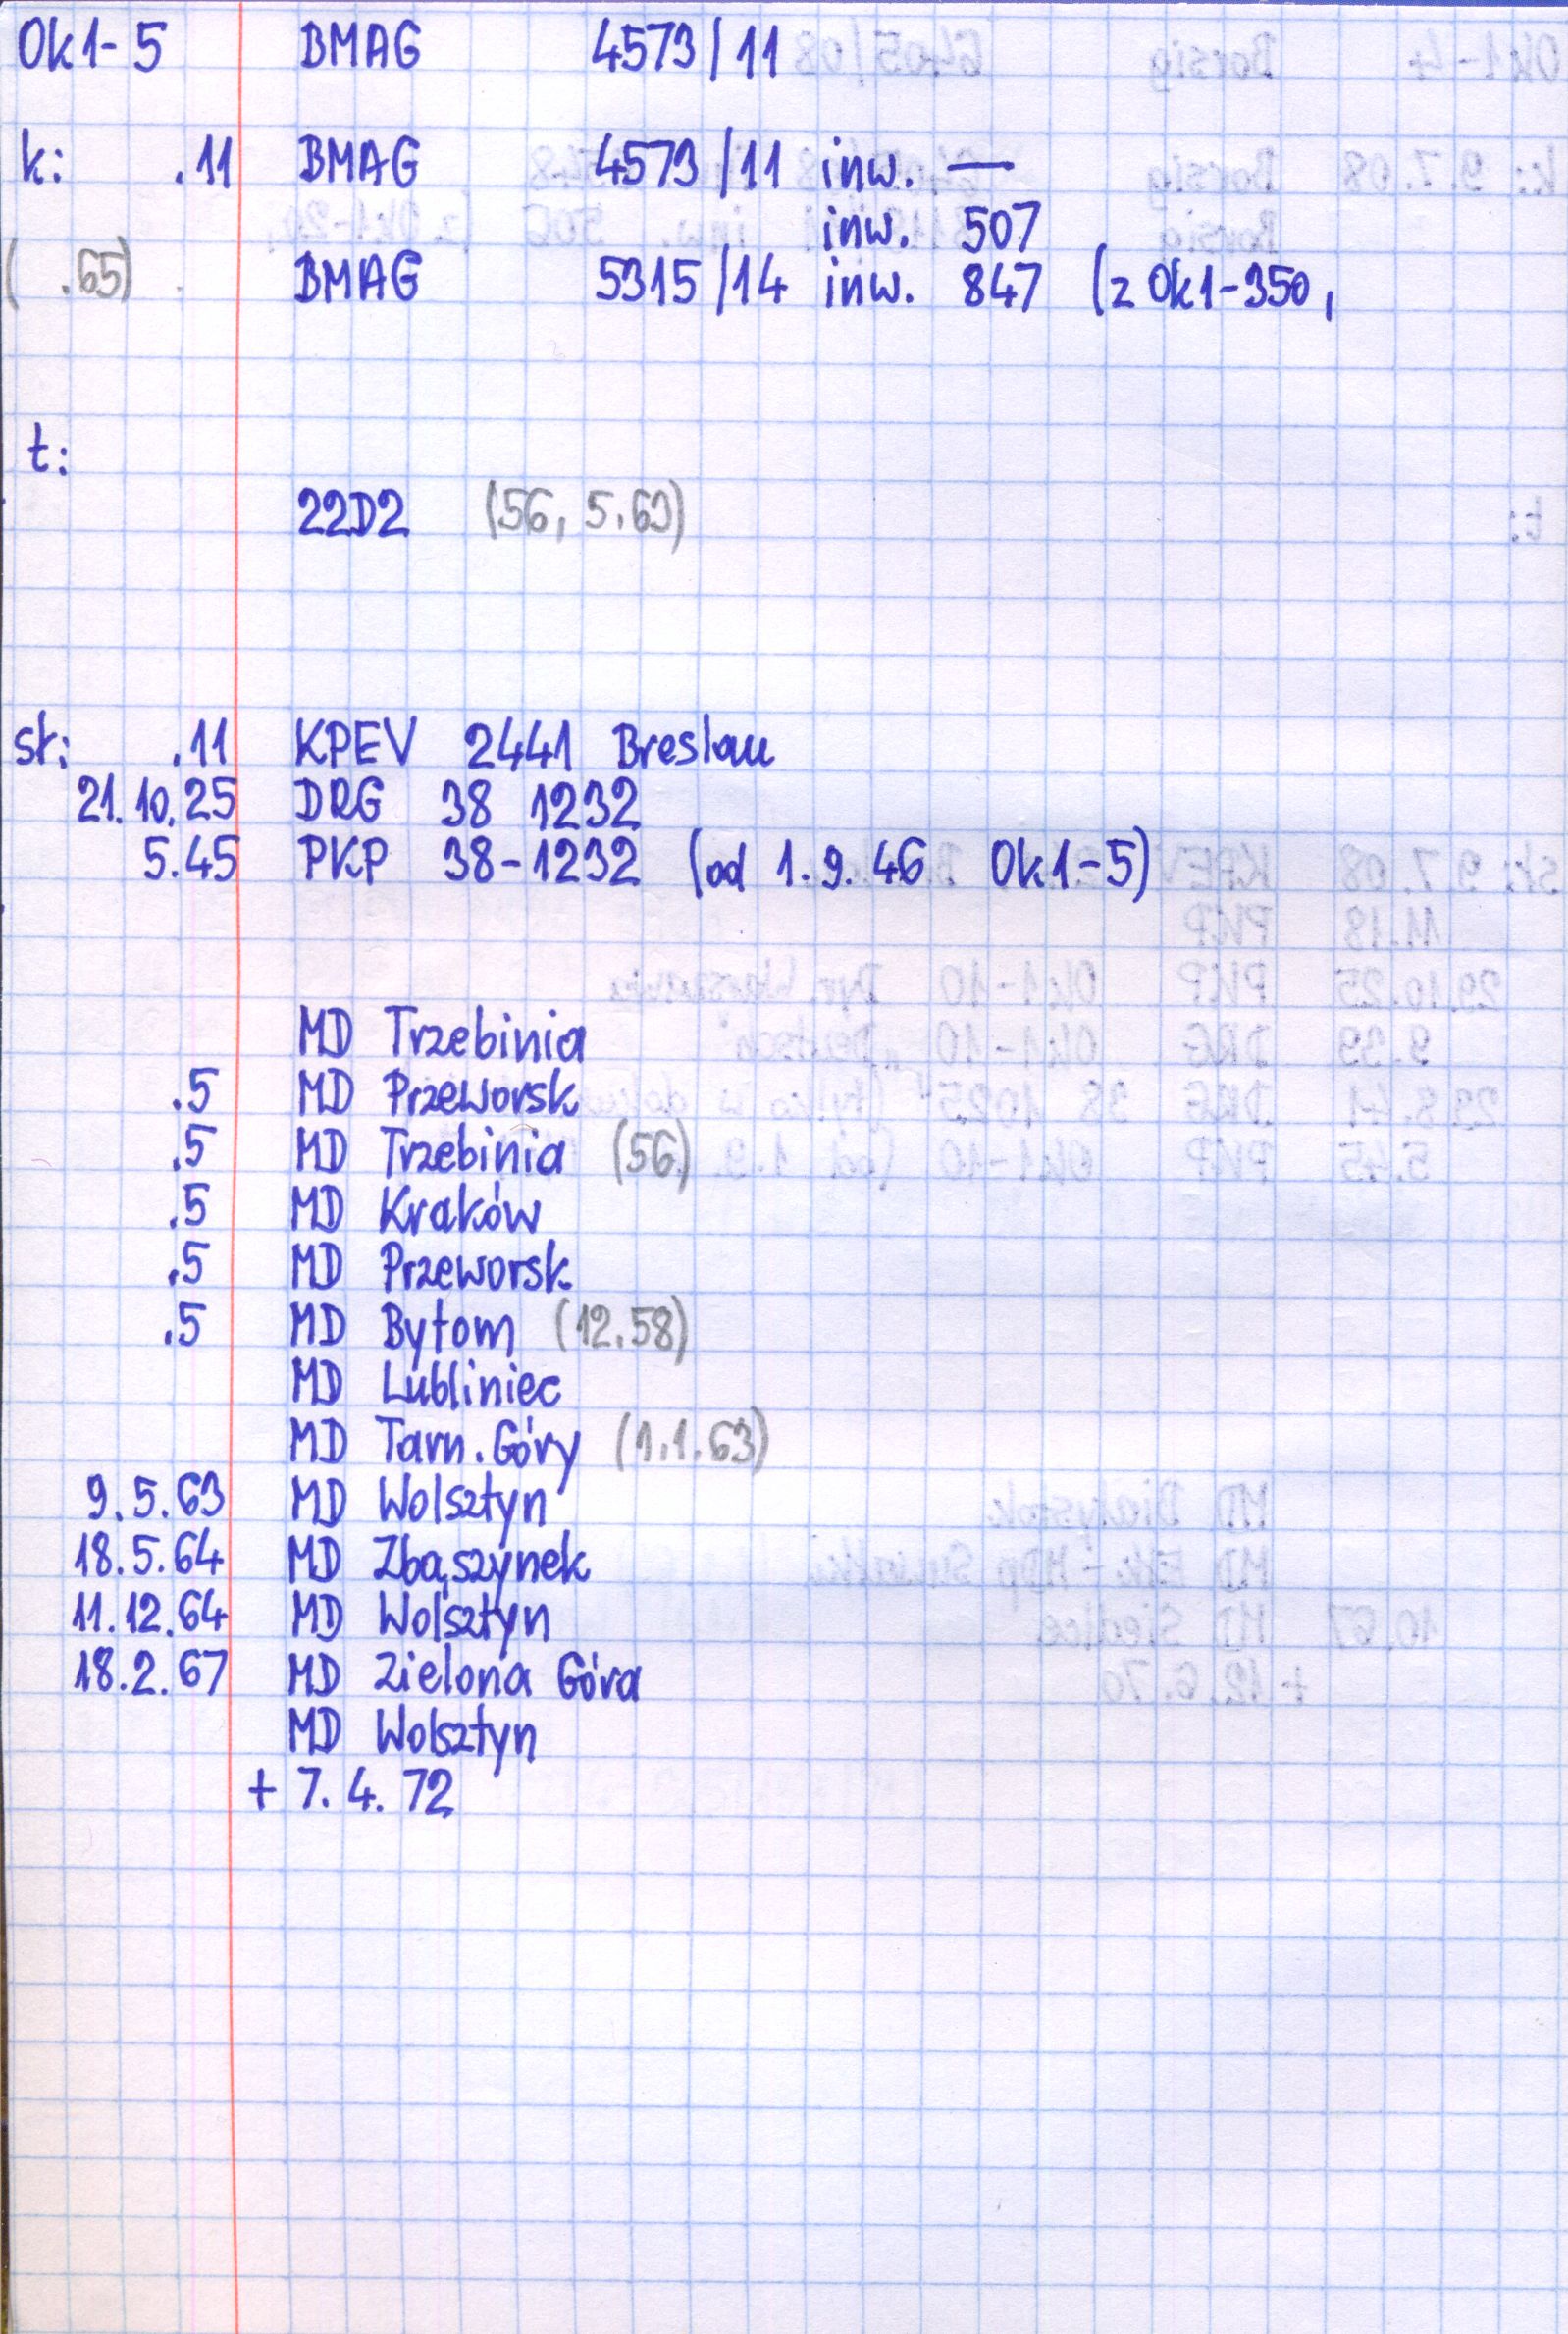 Ok1-5 BMAG 4573/11
k: .11 BMAG 4573/11 inw. —
inw. 507
( .65) BMAG 5315/14 inw. 847 (z Ok1-350,
t:
22D2 (56, 5.63)
st: .11 KPEV 2441 Breslau
21.10.25 DRG 38 1232
5.45 PKP 38-1232 (od 1.9.46 Ok1-5)
MD Trzebinia
.5 MD Przeworsk
.5 MD Trzebinia (56)
.5 MD Kraków
.5 MD Przeworsk
.5 MD Bytom (12.58)
MD Lubliniec
MD Tarn. Góry (1.1.63)
9.5.63 MD Wolsztyn
18.5.64 MD Zbąszynek
11.12.64 MD Wolsztyn
18.2.67 MD Zielona Góra
MD Wolsztyn
+ 7.4.72